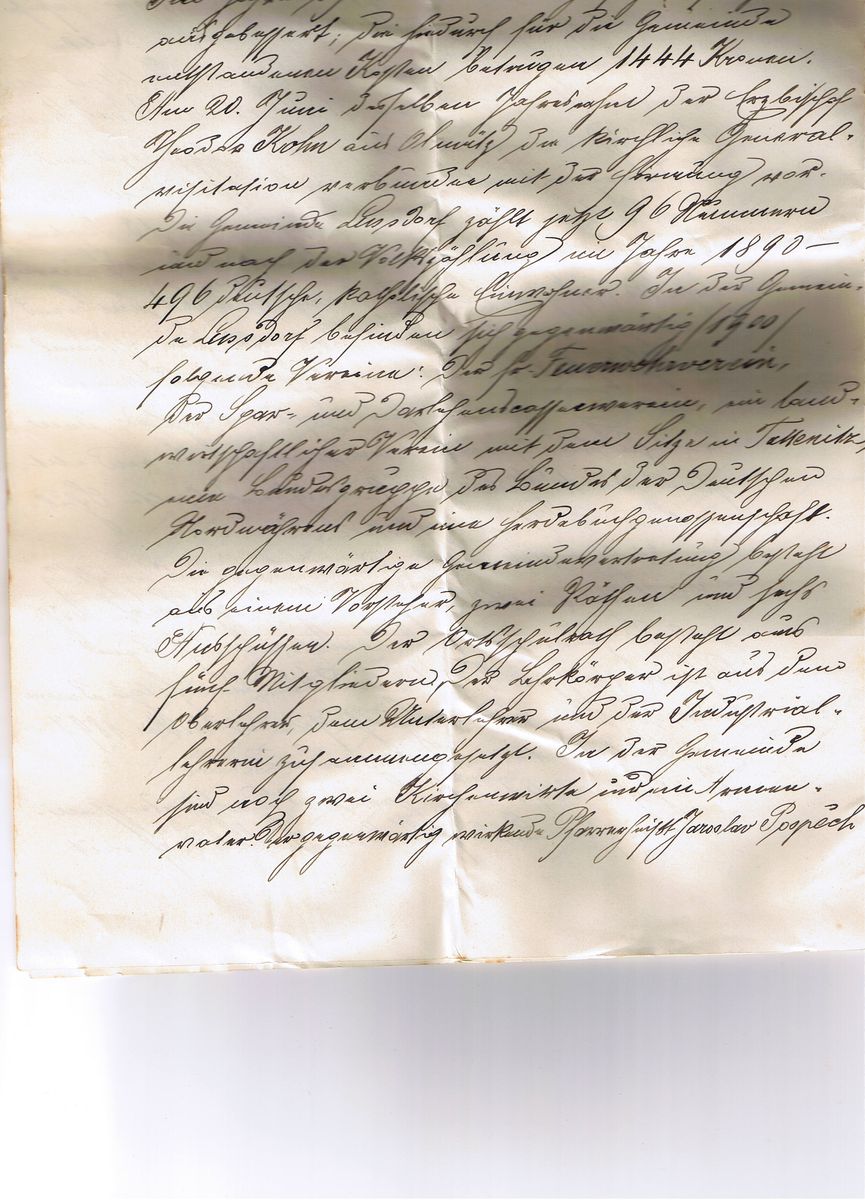 ausgebessert; die hiedurch für die Gemeinde
entstandenen Kosten betrugen 1444 Kronen.
Am 20. Juni desselben Jahres nahm der Erzbischof
Theodor Kohn aus Olmütz die kirchliche General-
visitation verbunden mit der Firmung vor.
Die Gemeinde Lessdorf zählt jetzt 96 Nummern
und nach der Volkszählung im Jahre 1890 –
496 deutsche, katholische Einwohner. In der Gemein-
de Lessdorf befinden sich gegenwärtig /1900/
folgende Vereine: Der fr. Feuerwehrverein,
der Spar- und Darlehenscassenverein, ein land-
wirtschaftlicher Verein mit dem Sitze in Tattenitz,
eine Bundesgruppe des Bundes der Deutschen
Nordmährens und eine Herdebuchgenossenschaft.
Die gegenwärtige Gemeindevertretung besteht
aus einem Vorsteher, zwei Räthen und sechs
Ausschüssen. Der Ortsschulrath besteht aus
fünf Mitgliedern. Der Lehrkörper ist aus dem
Oberlehrer, dem Unterlehrer und der Industrial-
lehrerin zusammengesetzt. In der Gemeinde
sind noch zwei Kirchenwirte und ein Armen-
vater. Der gegenwärtig wirkende Pfarrer heißt Jaroslav Pospěch